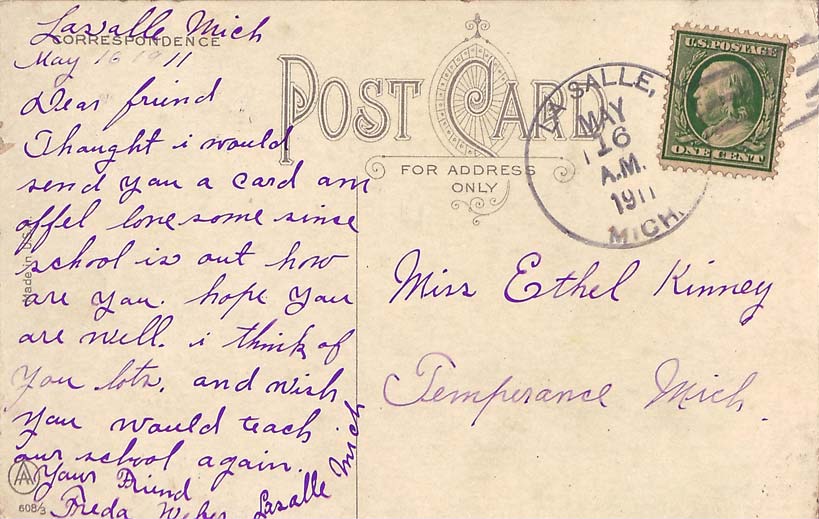 Lasalle Mich
CORRESPONDENCE
May 16 1911
Dear friend
Thought i would
send you a card am
offel lonesome since
school is out how
are you. hope you
are well. i think of
you lots. and wish
you would teach
our school again.
Your Friend
Freda Lasalle Mich
Made in U.S.A.
AA
608/3
POST CARD
FOR ADDRESS
ONLY
LA SALLE,
MAY
16
A.M.
1911
MICH.
U.S. POSTAGE
ONE CENT
Miss Ethel Kinney
Temperance Mich.